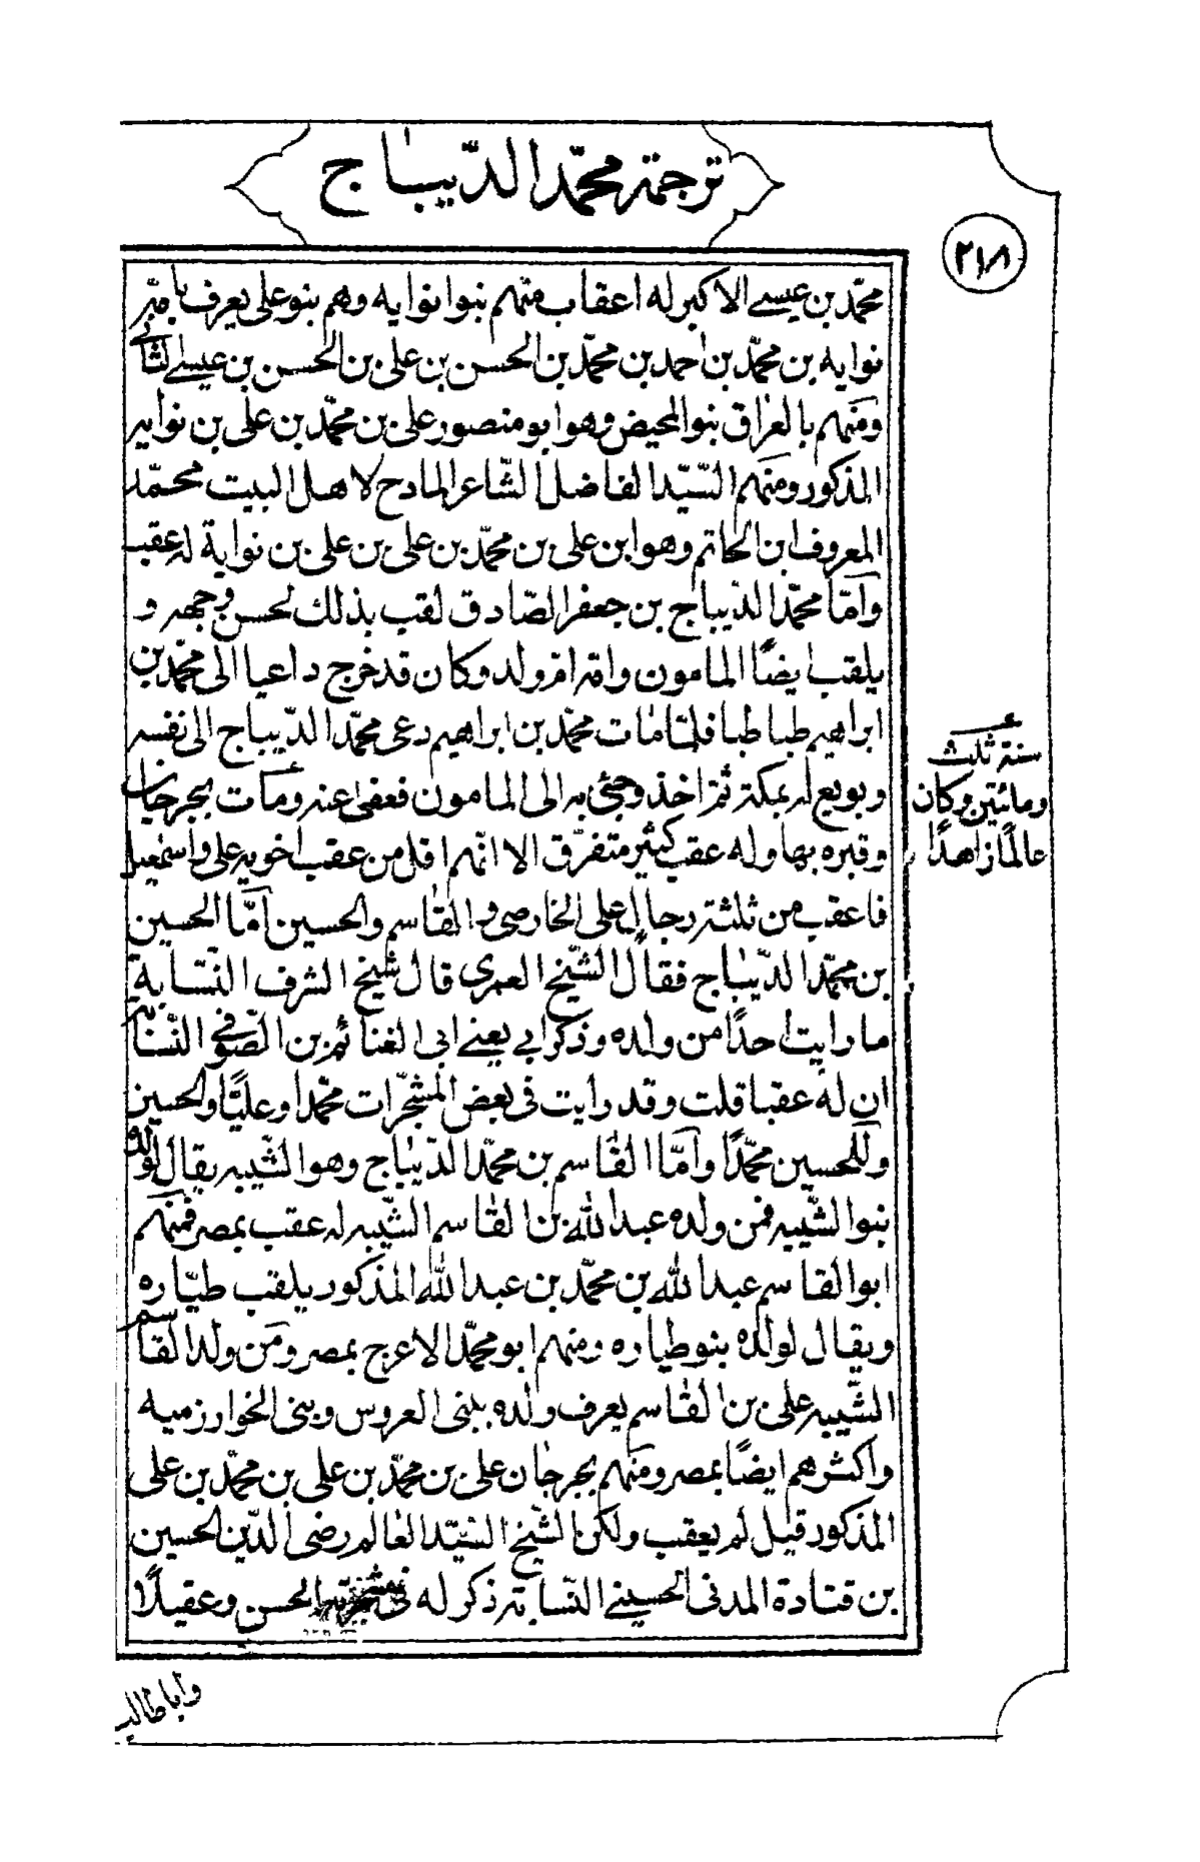 ترجمة محمّد الدّيباج
٢١٨
محمّد بن عيسى الاكبر له اعقاب منهم بنوا نوايه وهم بنو على يعرف بامّه
نوايه بن محمّد بن احمد بن محمّد بن الحسن بن على بن الحسن بن عيسى الثانى
ومنهم بالعراق بنو المحيض وهو ابو منصور على بن محمّد بن على بن نوايه
المذكور ومنهم السّيّد الفاضل الشّاعر المادح لاهل البيت محمّد
المعروف ابن الحاتم وهو ابن على بن محمّد بن على بن على بن نواية له عقب
وامّا محمّد الدّيباج بن جعفر الصّادق لقب بذلك لحسن وجهه و
يلقب ايضًا المامون وامّه امّ ولد وكان قد خرج داعيا الى محمّد بن
ابراهيم طباطبا فلمّا مات محمّد بن ابراهيم دعى محمّد الدّيباج الى نفسه
وبويع له بمكة ثمّ اخذ وجئ به الى المامون فعفى عنه ومات بجرجان
وقبره بها وله عقب كثير متفرّق الا انّهم اقل من عقب اخويه على واسمعيل
فاعقب من ثلثة رجال على الخارصى والقاسم والحسين امّا الحسين
بن محمّد الدّيباج فقال الشّيخ العمرى قال شيخ الشرف النّسّابة
ما رايت احدًا من ولده وذكر ابى يعنى ابى الغنائم بن الصّوفى النّسّابه
ان له عقبا قلت وقد رايت فى بعض المشجّرات محمّدا وعليّا والحسين
وللحسين محمّدًا وامّا القاسم بن محمّد الدّيباج وهو الشّبيه يقال لولده
بنوا الشّبيه فمن ولده عبد الله بن القاسم الشّبيه له عقب بمصر فمنهم
ابو القاسم عبد الله بن محمّد بن عبد الله المذكور يلقب طيّاره
ويقال لولده بنو طياره ومنهم ابو محمّد الاعرج بمصر ومن ولد القاسم
الشّبيه على بن القاسم يعرف ولده ببنى العروس وبنى الخوارزميه
واكثرهم ايضًا بمصر ومنهم بجرجان على بن محمّد بن على بن محمّد بن على
المذكور قيل لم يعقب ولكن الشّيخ السّيّد العالم رضى الدّين الحسين
بن قتادة المدنى الحسينى النّسابة ذكر له فى مشجرته الحسن وعقيلًا
سنة ثلث
ومائتين وكان
عالمًا زاهدًا
وابا طالب